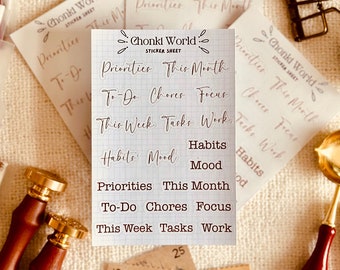 Chonki World
STICKER SHEET
Priorities This Month
To-Do Chores Focus
This Week Tasks Work
Habits Mood
Habits
Mood
Priorities This Month
To-Do Chores Focus
This Week Tasks Work
25